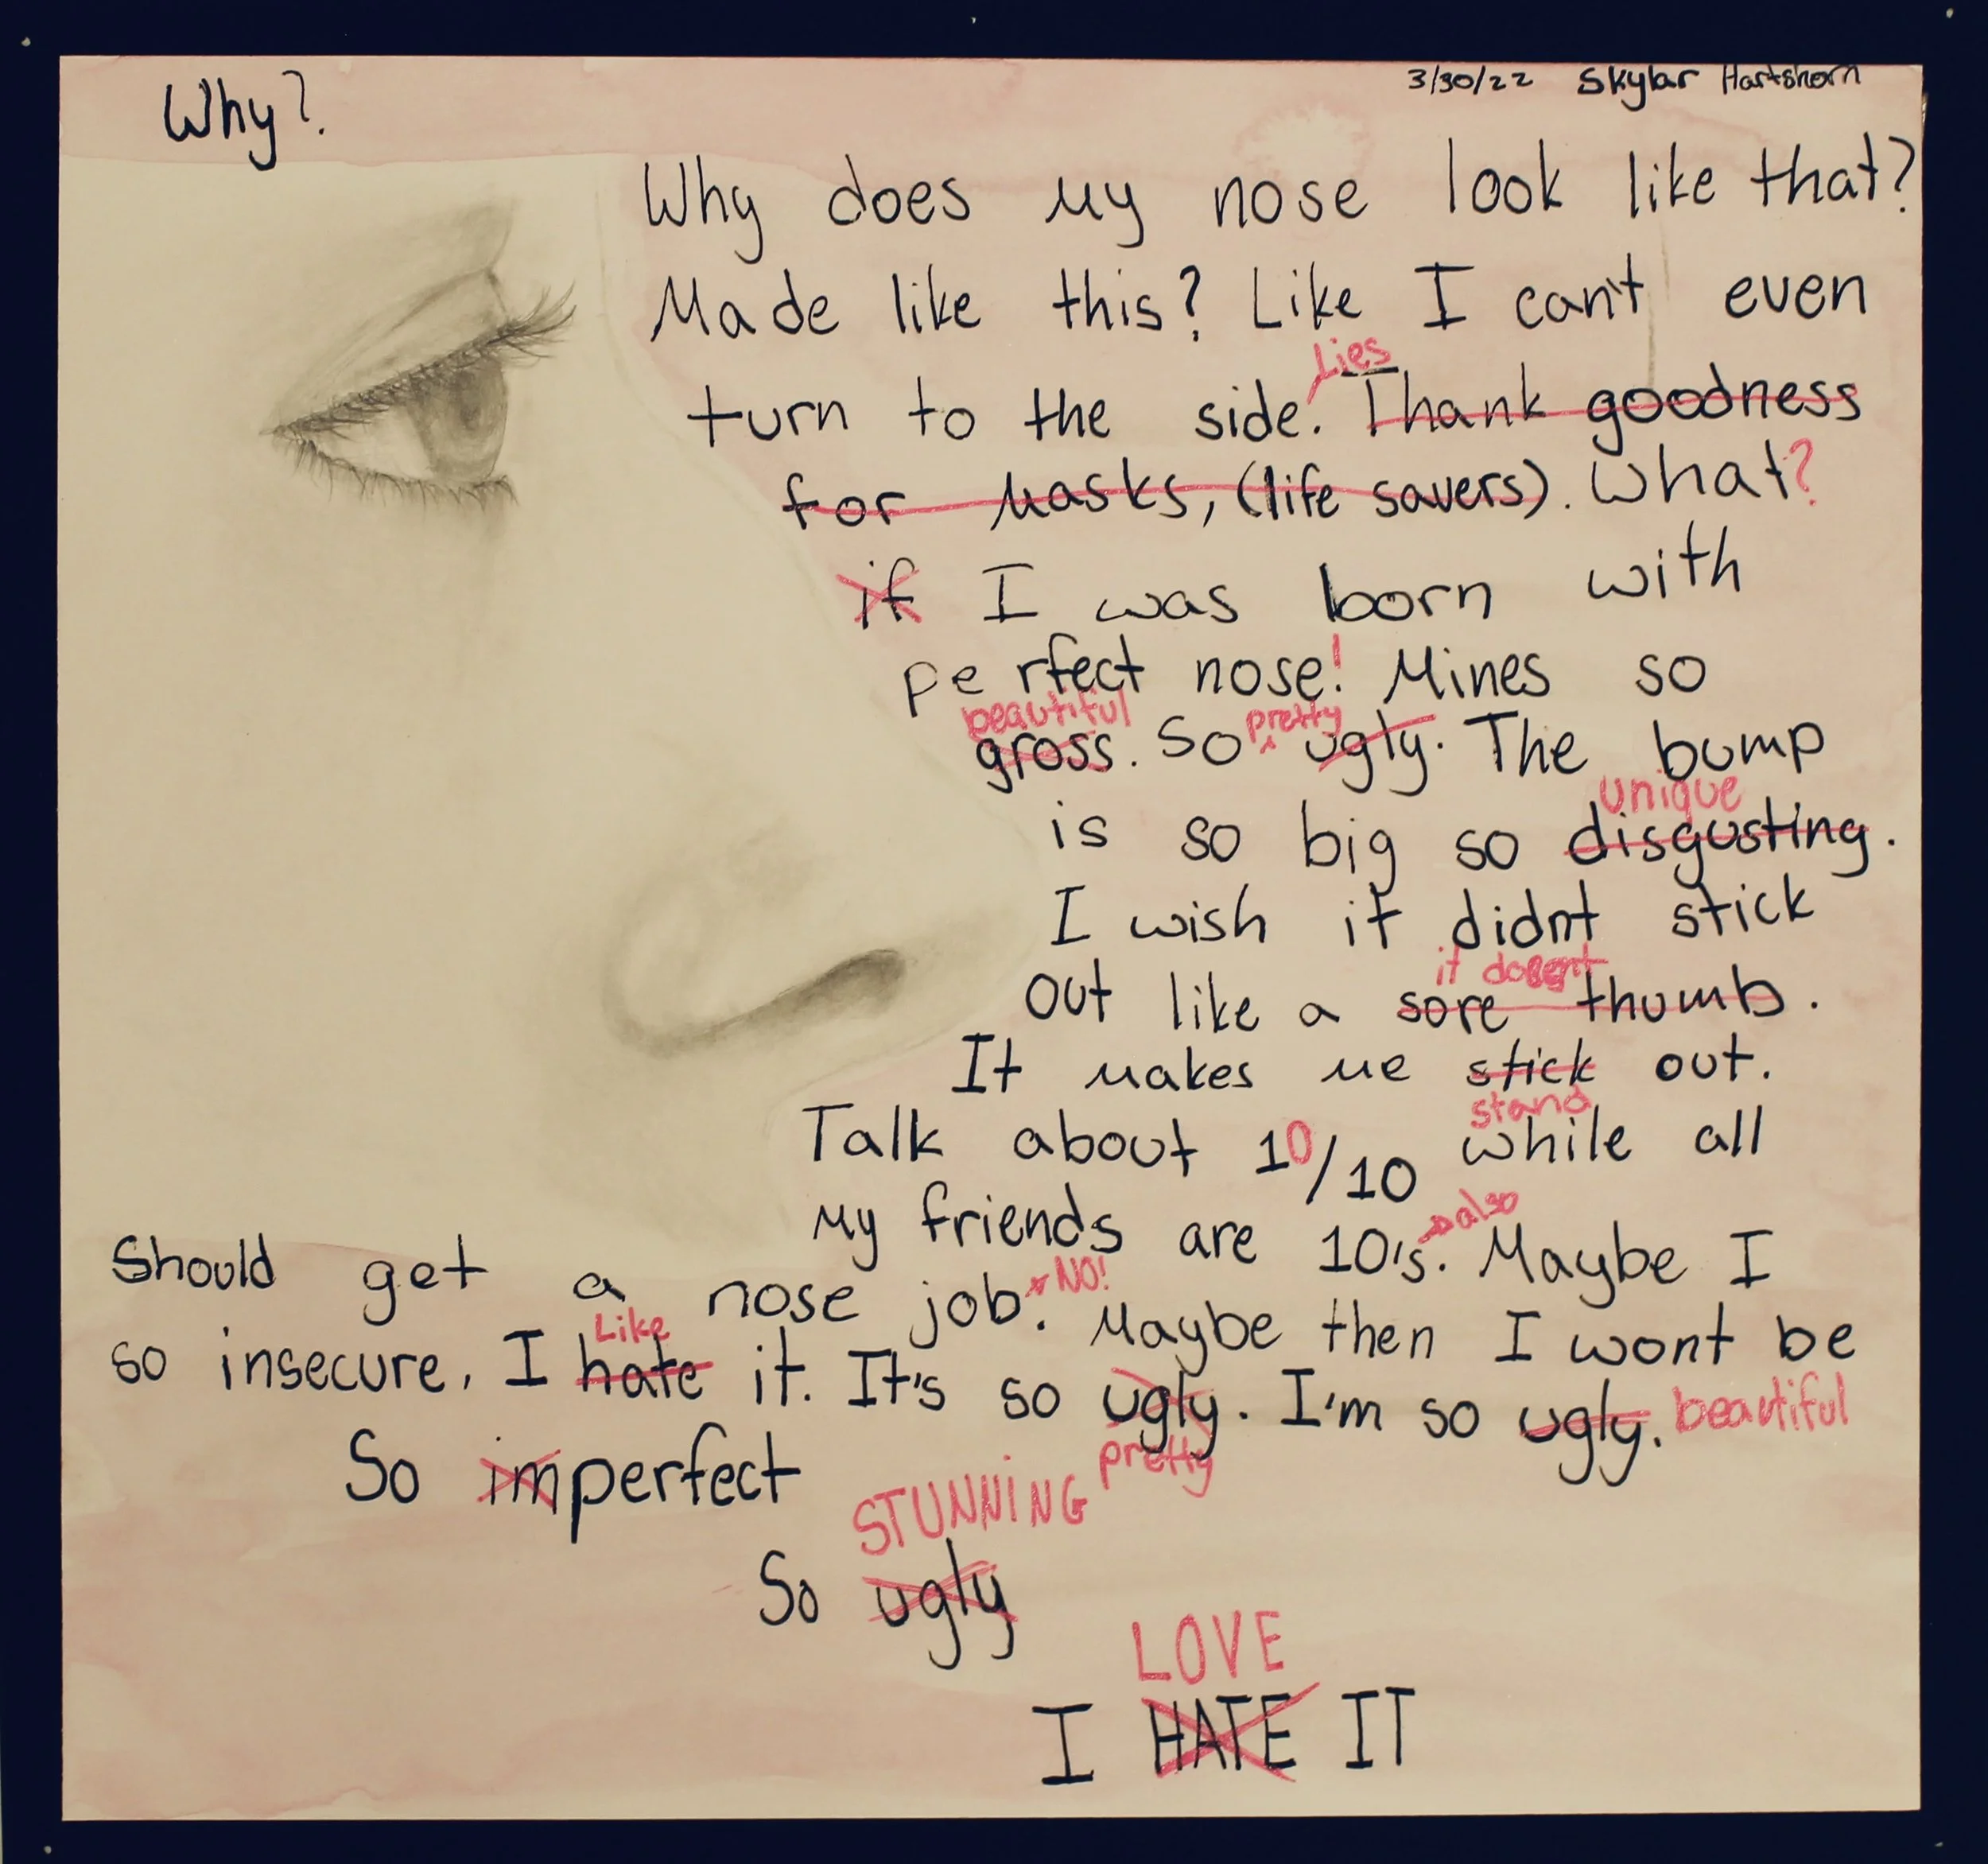 3/30/22 Skylar Hartshorn
Why?
Why does my nose look like that?
Made like this? Like I can't even
Lies
turn to the side. Thank goodness
for masks, (life savers). What?
if I was born with
perfect nose! Mines so
beautiful pretty
gross. So ugly. The bump
unique
is so big so disgusting.
I wish it didnt stick
it doesent
out like a sore thumb.
It makes me stick out.
stand
Talk about 10/10 while all
also
my friends are 10's. Maybe I
should get a nose job. NO! Maybe then I wont be
Like
so insecure. I hate it. It's so ugly. I'm so ugly. beautiful
pretty
So imperfect
STUNNING
So ugly
LOVE
I HATE IT